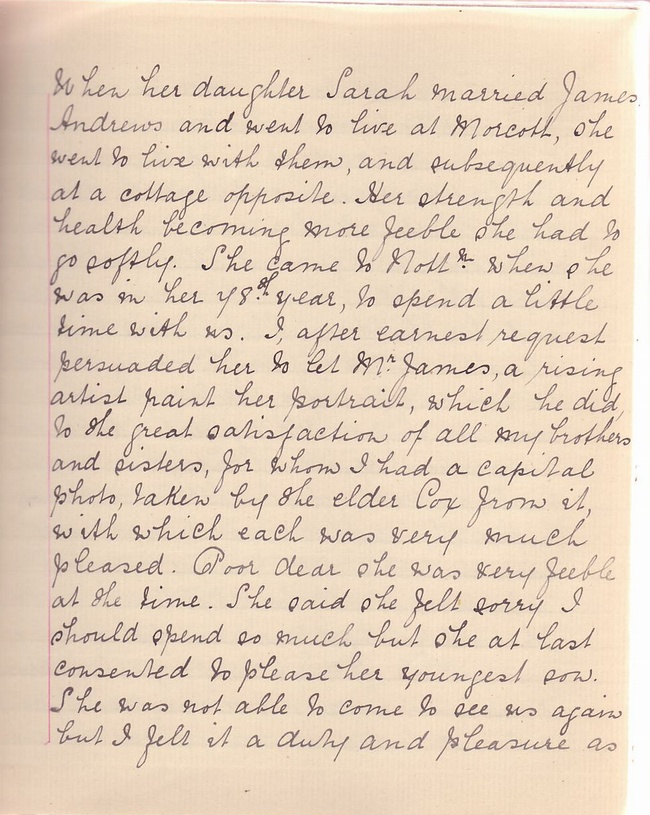 When her daughter Sarah married James
Andrews and went to live at Morcott, she
went to live with them, and subsequently
at a cottage opposite. Her strength and
health becoming more feeble she had to
go softly. She came to Nottm when she
was in her 78th year, to spend a little
time with us. I, after earnest request
persuaded her to let Mr James, a rising
artist paint her portrait, which he did,
to the great satisfaction of all my brothers
and sisters, for whom I had a capital
photo, taken by the elder Cox from it,
with which each was very much
pleased. Poor dear she was very feeble
at the time. She said she felt sorry I
should spend so much but she at last
consented to please her youngest son.
She was not able to come to see us again
but I felt it a duty and pleasure as